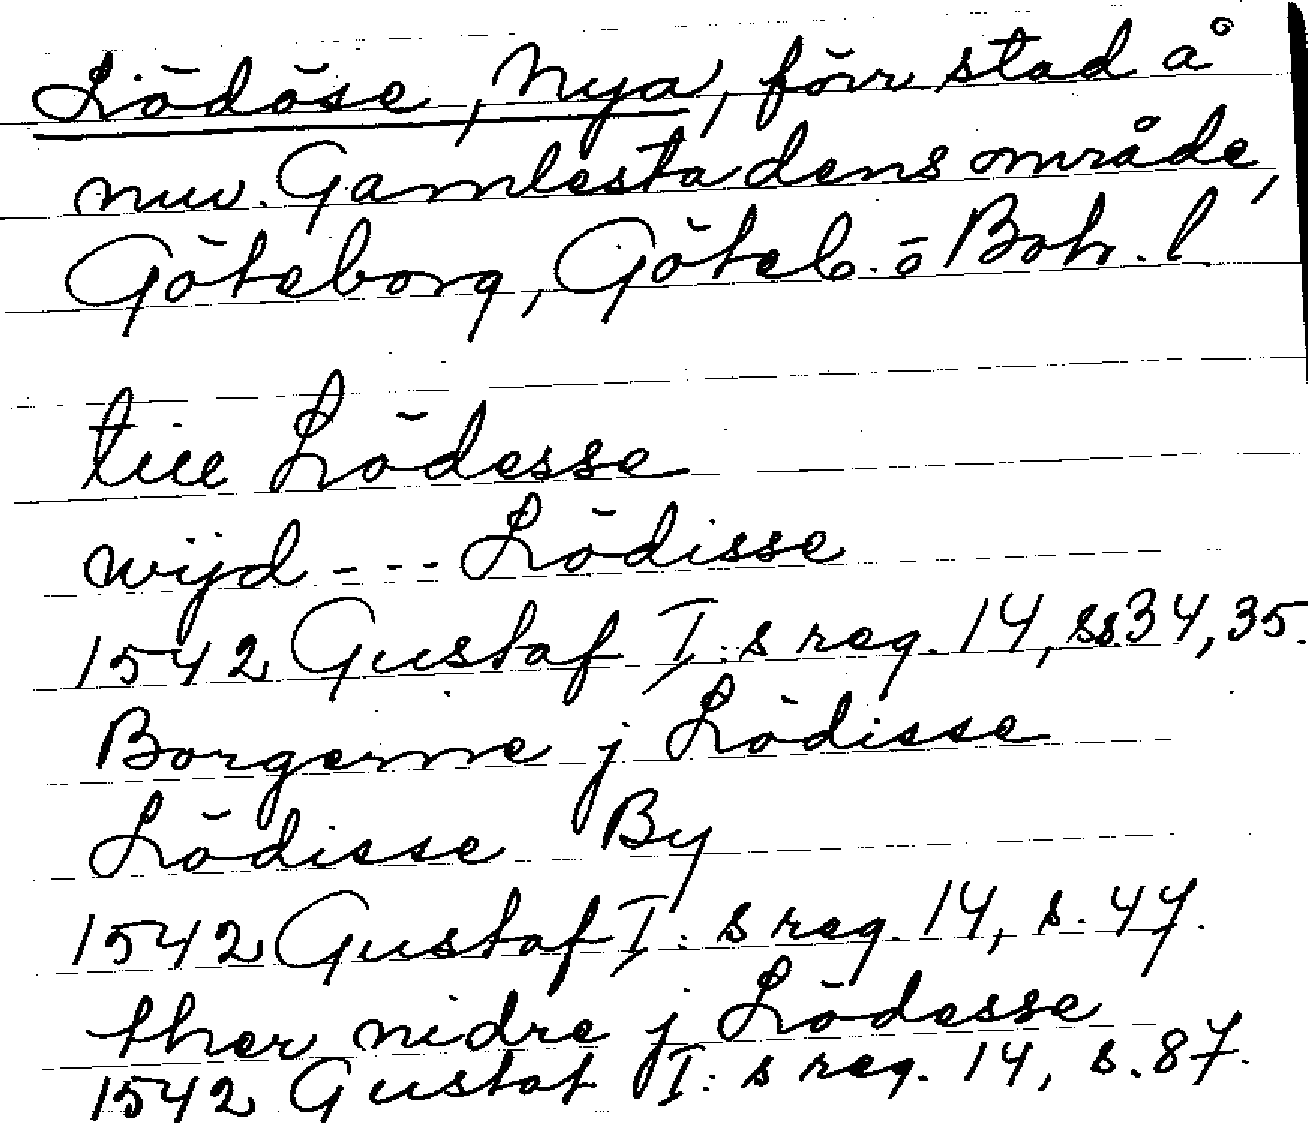 Lödöse, Nya, förr stad å
nuv. Gamlestadens område,
Göteborg, Göteb. o Boh. l
till Lödesse
wijd --- Lödisse
1542 Gustaf I:s reg. 14, ss. 34, 35.
Borgerne j Lödisse
Lödisse By
1542 Gustaf I:s reg. 14, s. 47.
ther nidre j Lödesse
1542 Gustaf I:s reg. 14, s. 87.